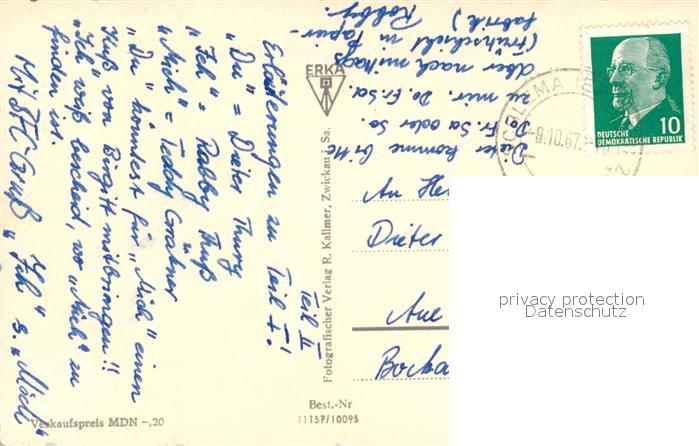 Teil II
Erläuterungen zu Teil I!
"Du" = Dieter Thury
"Ich" = Robby Thuß
"Mich" = Teddy Gräbner
"Du" könntest für "Mich" einen
Kuß von Birgit mitbringen!!
"Ich" weiß bescheid, wo "Mich" zu
finden ist.
Mit Gruß "Ich" s. "Mich"
Dieter komme bitte
Die. Do. Fr. Sa oder So.
zu mir. Do. Fr. Sa.
aber nach mittags
(Frühschicht in Papier-
fabrik)
Robby.
ERKA
Fotografischer Verlag R. Kallmer, Zwickau i. Sa.
-9.10.67
10
DEUTSCHE
DEMOKRATISCHE REPUBLIK
An
Dieter
Aue
Bocka
privacy protection
Datenschutz
Best.-Nr
11157/10095
Verkaufspreis MDN -,20